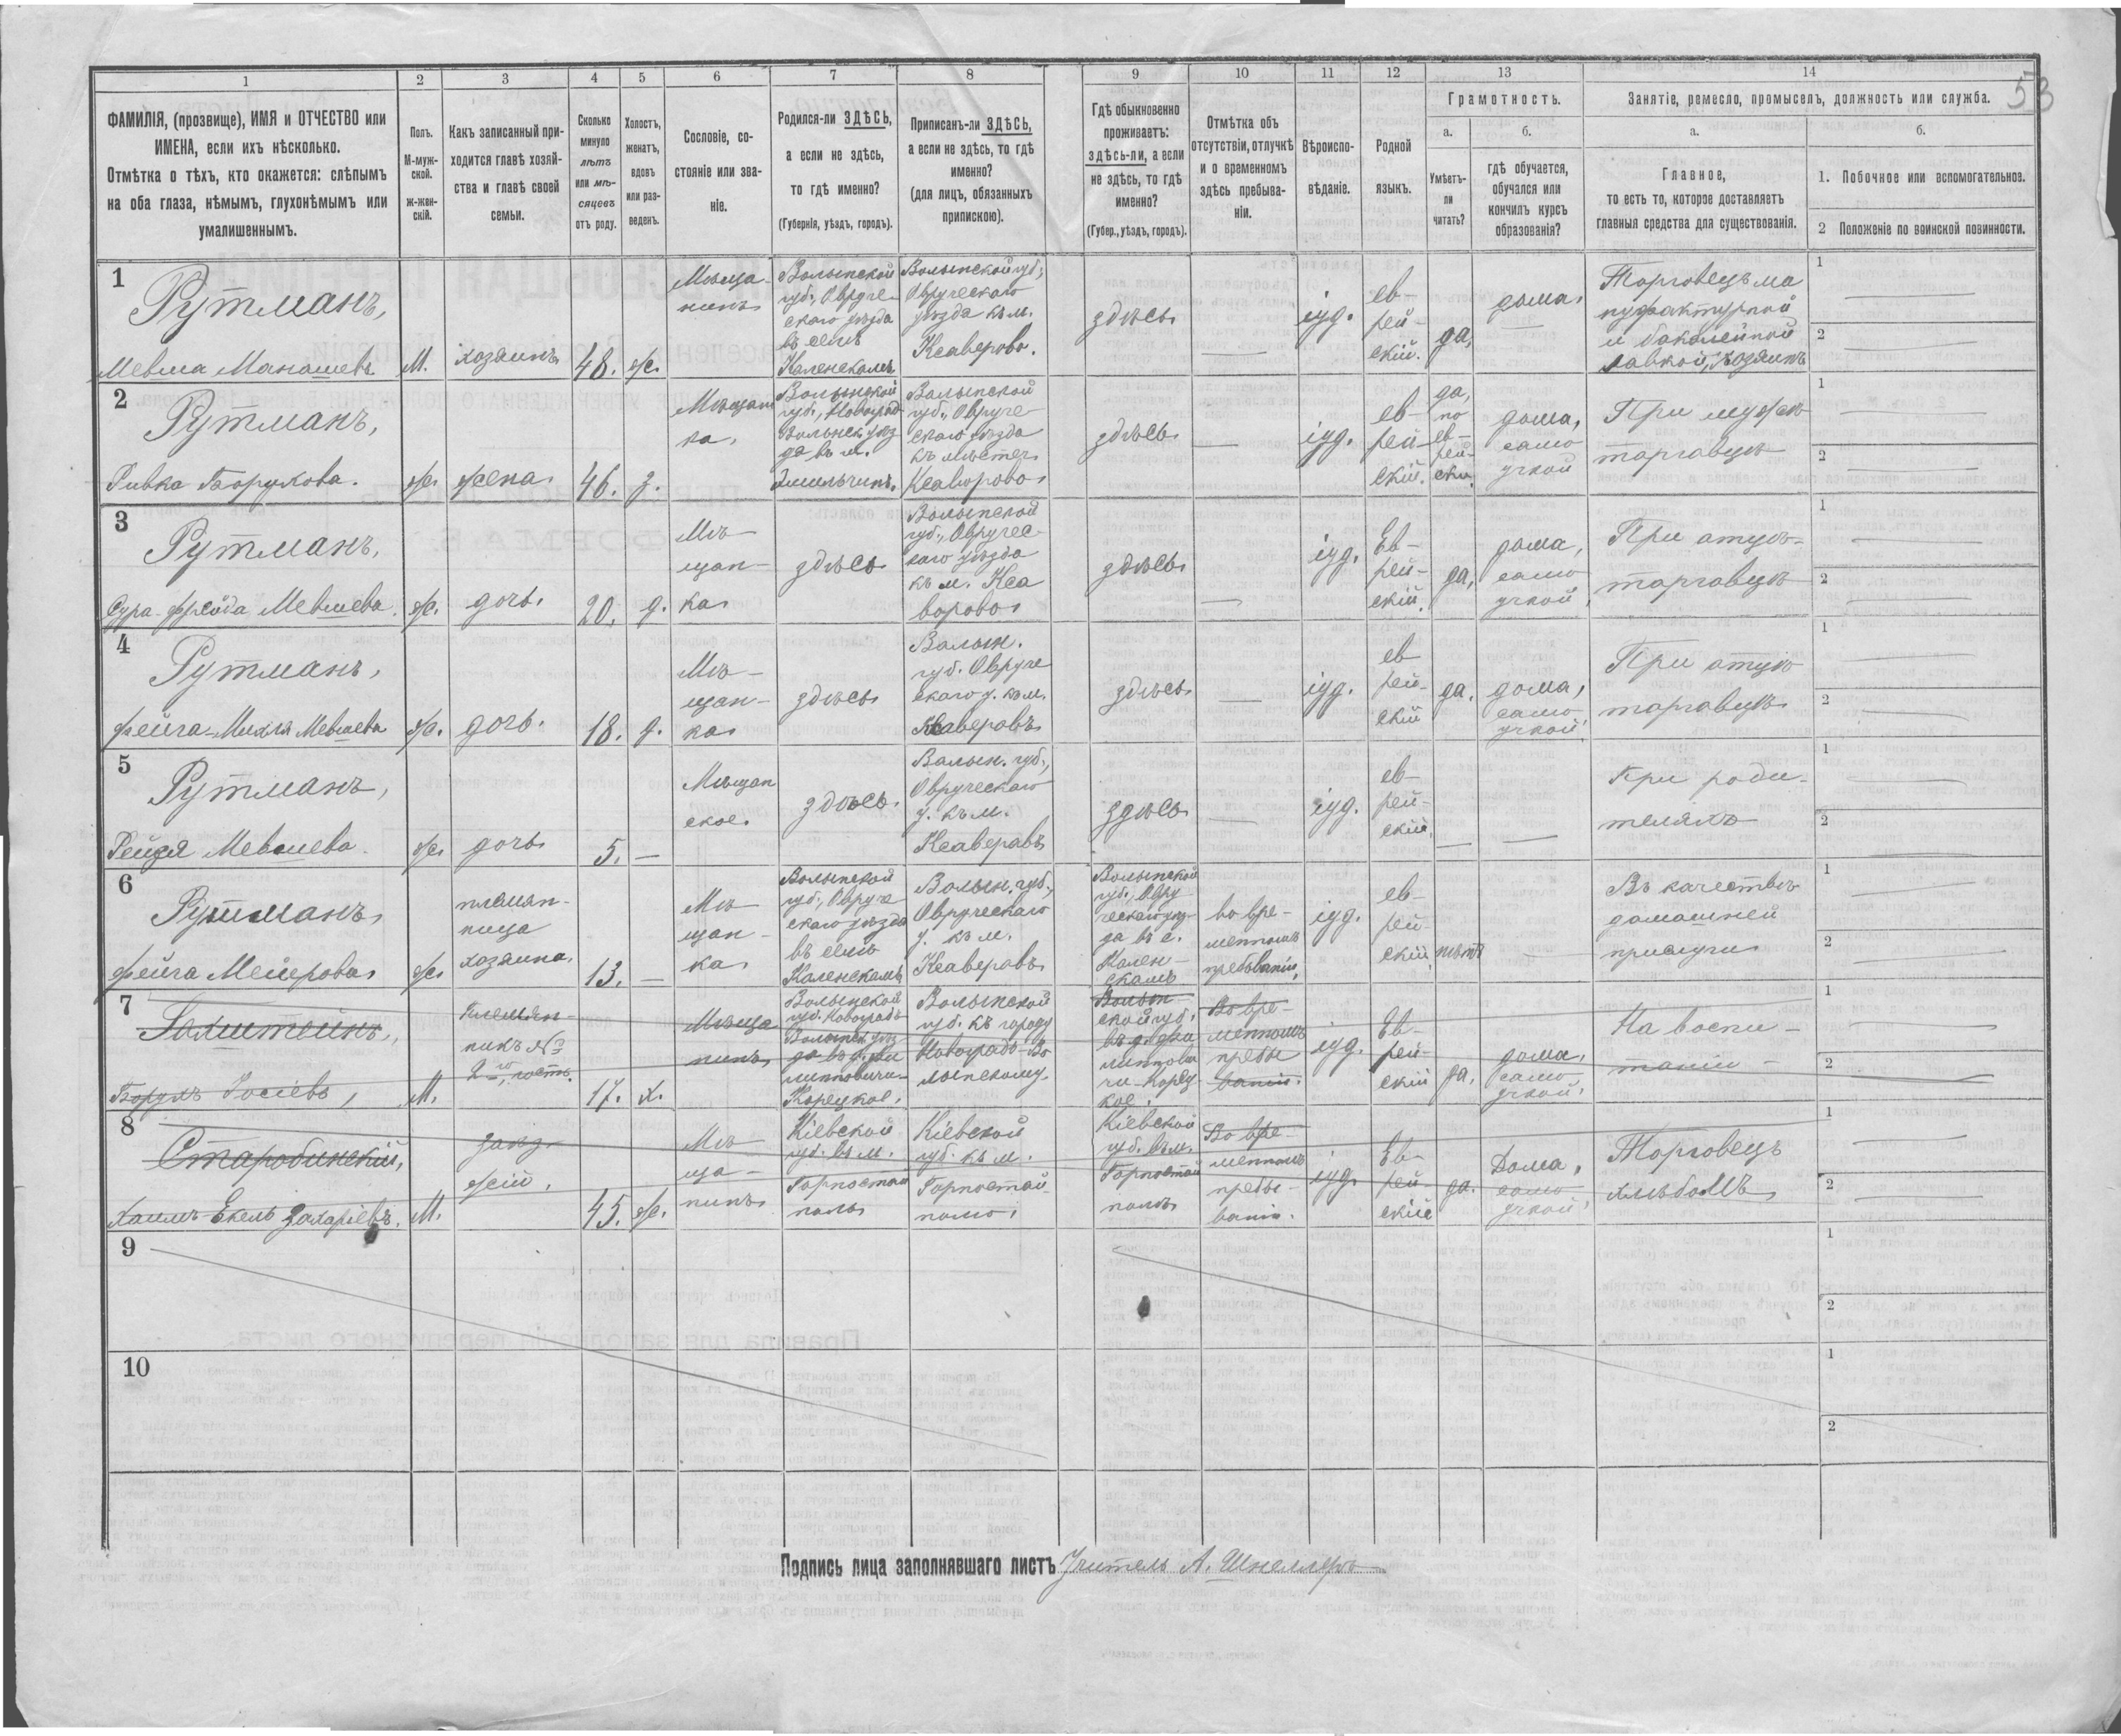 53
1
2
3
4
5
6
7
8
9
10
11
12
13
14
ФАМИЛІЯ, (прозвище), ИМЯ и ОТЧЕСТВО или
ИМЕНА, если ихъ нѣсколько.
Отмѣтка о тѣхъ, кто окажется: слѣпымъ
на оба глаза, нѣмымъ, глухонѣмымъ или
умалишеннымъ.
Полъ.
М-муж-
ской.
ж-жен-
скій.
Какъ записанный при-
ходится главѣ хозяй-
ства и главѣ своей
семьи.
Сколько
минуло
лѣтъ
или мѣ-
сяцевъ
отъ роду.
Холостъ,
женатъ,
вдовъ
или раз-
веденъ.
Сословіе, со-
стояніе или зва-
ніе.
Родился-ли ЗДѢСЬ,
а если не здѣсь,
то гдѣ именно?
(Губернія, уѣздъ, городъ).
Приписанъ-ли ЗДѢСЬ,
а если не здѣсь, то гдѣ
именно?
(для лицъ, обязанныхъ
припискою).
Гдѣ обыкновенно
проживаетъ:
здѣсь-ли, а если
не здѣсь, то гдѣ
именно?
(Губер., уѣздъ, городъ).
Отмѣтка объ
отсутствіи, отлучкѣ
и о временномъ
здѣсь пребыва-
ніи.
Вѣроиспо-
вѣданіе.
Родной
языкъ.
Грамотность.
а.
Умѣетъ-
ли
читать?
б.
гдѣ обучается,
обучался или
кончилъ курсъ
образованія?
Занятіе, ремесло, промыселъ, должность или служба.
а.
Главное,
то есть то, которое доставляетъ
главныя средства для существованія.
б.
1. Побочное или вспомогательное.
2 Положеніе по воинской повинности.
1
Рутманъ,
Мевша Манашевъ
М.
хозяинъ
48.
ж.
Мѣща-
нинъ
Волынской
губ., Овруче-
скаго уѣзда
въ селѣ
Каленскомъ
Волынской губ.,
Овруческаго
уѣзда къ м.
Ксаверово.
здѣсь
іуд.
ев-
рей-
скій.
да,
дома.
Торговецъ ма
нуфактурной
и бакалейной
лавкой, хозяинъ
1
2
2
Рутманъ,
Ривка Борухова.
ж.
жена
46.
з.
Мѣщан
ка.
Волынской
губ., Новоград
Волынск. уѣз
да въ м.
Эмильчинъ.
Волынской
губ., Овруче
скаго уѣзда
къ мѣстеч.
Ксаворово
здѣсь
іуд.
ев-
рей-
скій.
да,
по
ев-
рей-
ски.
дома,
само
учкой
При мужѣ
торговцѣ
1
2
3
Рутманъ,
Сура-Фрейда Мевшева.
ж.
дочь
20.
д.
Мѣ-
щан-
ка
здѣсь
Волынской
губ., Овручес-
каго уѣзда
къ м. Кса
ворово
здѣсь
іуд.
Ев-
рей-
скій.
да,
дома,
само
учкой.
При отцѣ-
торговцѣ
1
2
4
Рутманъ,
Фейга-Михля Мевшева
ж.
дочь.
18.
д.
Мѣ-
щан-
ка
здѣсь
Волын.
губ. Овруче
скаго у. къ м.
Ксаверовъ
здѣсь
іуд.
ев
рей-
скій
да.
дома,
само
учкой.
При отцѣ
торговцѣ
1
2
5
Рутманъ,
Рейзя Мевшева
ж.
дочь
5.
Мѣщан
ское.
здѣсь.
Волын. губ.,
Овруческаго
у. къ м.
Ксаверовъ
здѣсь
іуд.
ев-
рей-
скій.
При роди-
теляхъ
1
2
6
Рутманъ,
Фейга Мейерова
ж.
племян-
ница
хозяина.
13.
Мѣ
щан-
ка
Волынской
губ., Овруче
скаго уѣзда
въ селѣ
Каленскомъ
Волын. губ.,
Овруческаго
у. къ м.
Ксаверовъ
Волынской
губ., Овру-
ческаго уѣз-
да въ с.
Кален-
скомъ
во вре-
менномъ
пребываніи.
іуд.
ев-
рей-
скій
нѣтъ
Въ качествѣ
домашней
прислуги
1
2
7
Борухъ Іосіевъ,
М.
Племян-
никъ №
2го, гость.
17.
х.
Мѣща
нинъ
Волынской
губ. Новоградъ
Волынск. уѣз
Корецкое.
Волынской
губ. къ городу
Новоградъ-Во
лынскому.
Во вре-
менномъ
пребы
ваніи.
іуд.
Ев-
рей-
скій
да.
дома,
само
учкой.
На воспи-
таніи
1
2
8
Старобинскій,
Хаимъ Екель Захаріевъ.
М.
заѣз-
жій.
45.
ж.
Мѣ
ща-
нинъ
Кіевской
губ. въ м.
Горностай
поль
Кіевской
губ. къ м.
Горностай-
полю.
Кіевской
губ. въ м.
Горностай
поль
Во вре-
менномъ
пребы-
ваніи.
іуд.
Ев-
рей-
скій
да.
Дома,
само
учкой.
Торговецъ
хлѣбомъ
1
2
9
1
2
10
1
2
Подпись лица заполнявшаго листъ Учитель А. Шнеллеръ